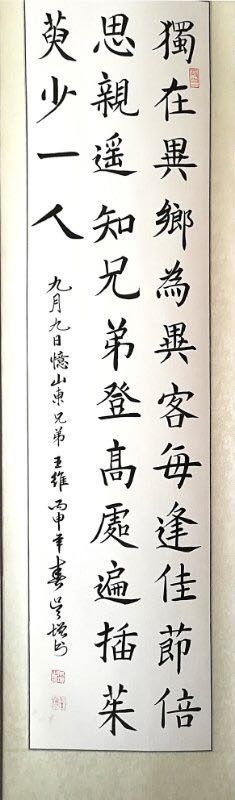 獨在異鄉為異客每逢佳節倍
思親遥知兄弟登高處遍插茱
萸少一人
九月九日憶山東兄弟 王維 丙申年春